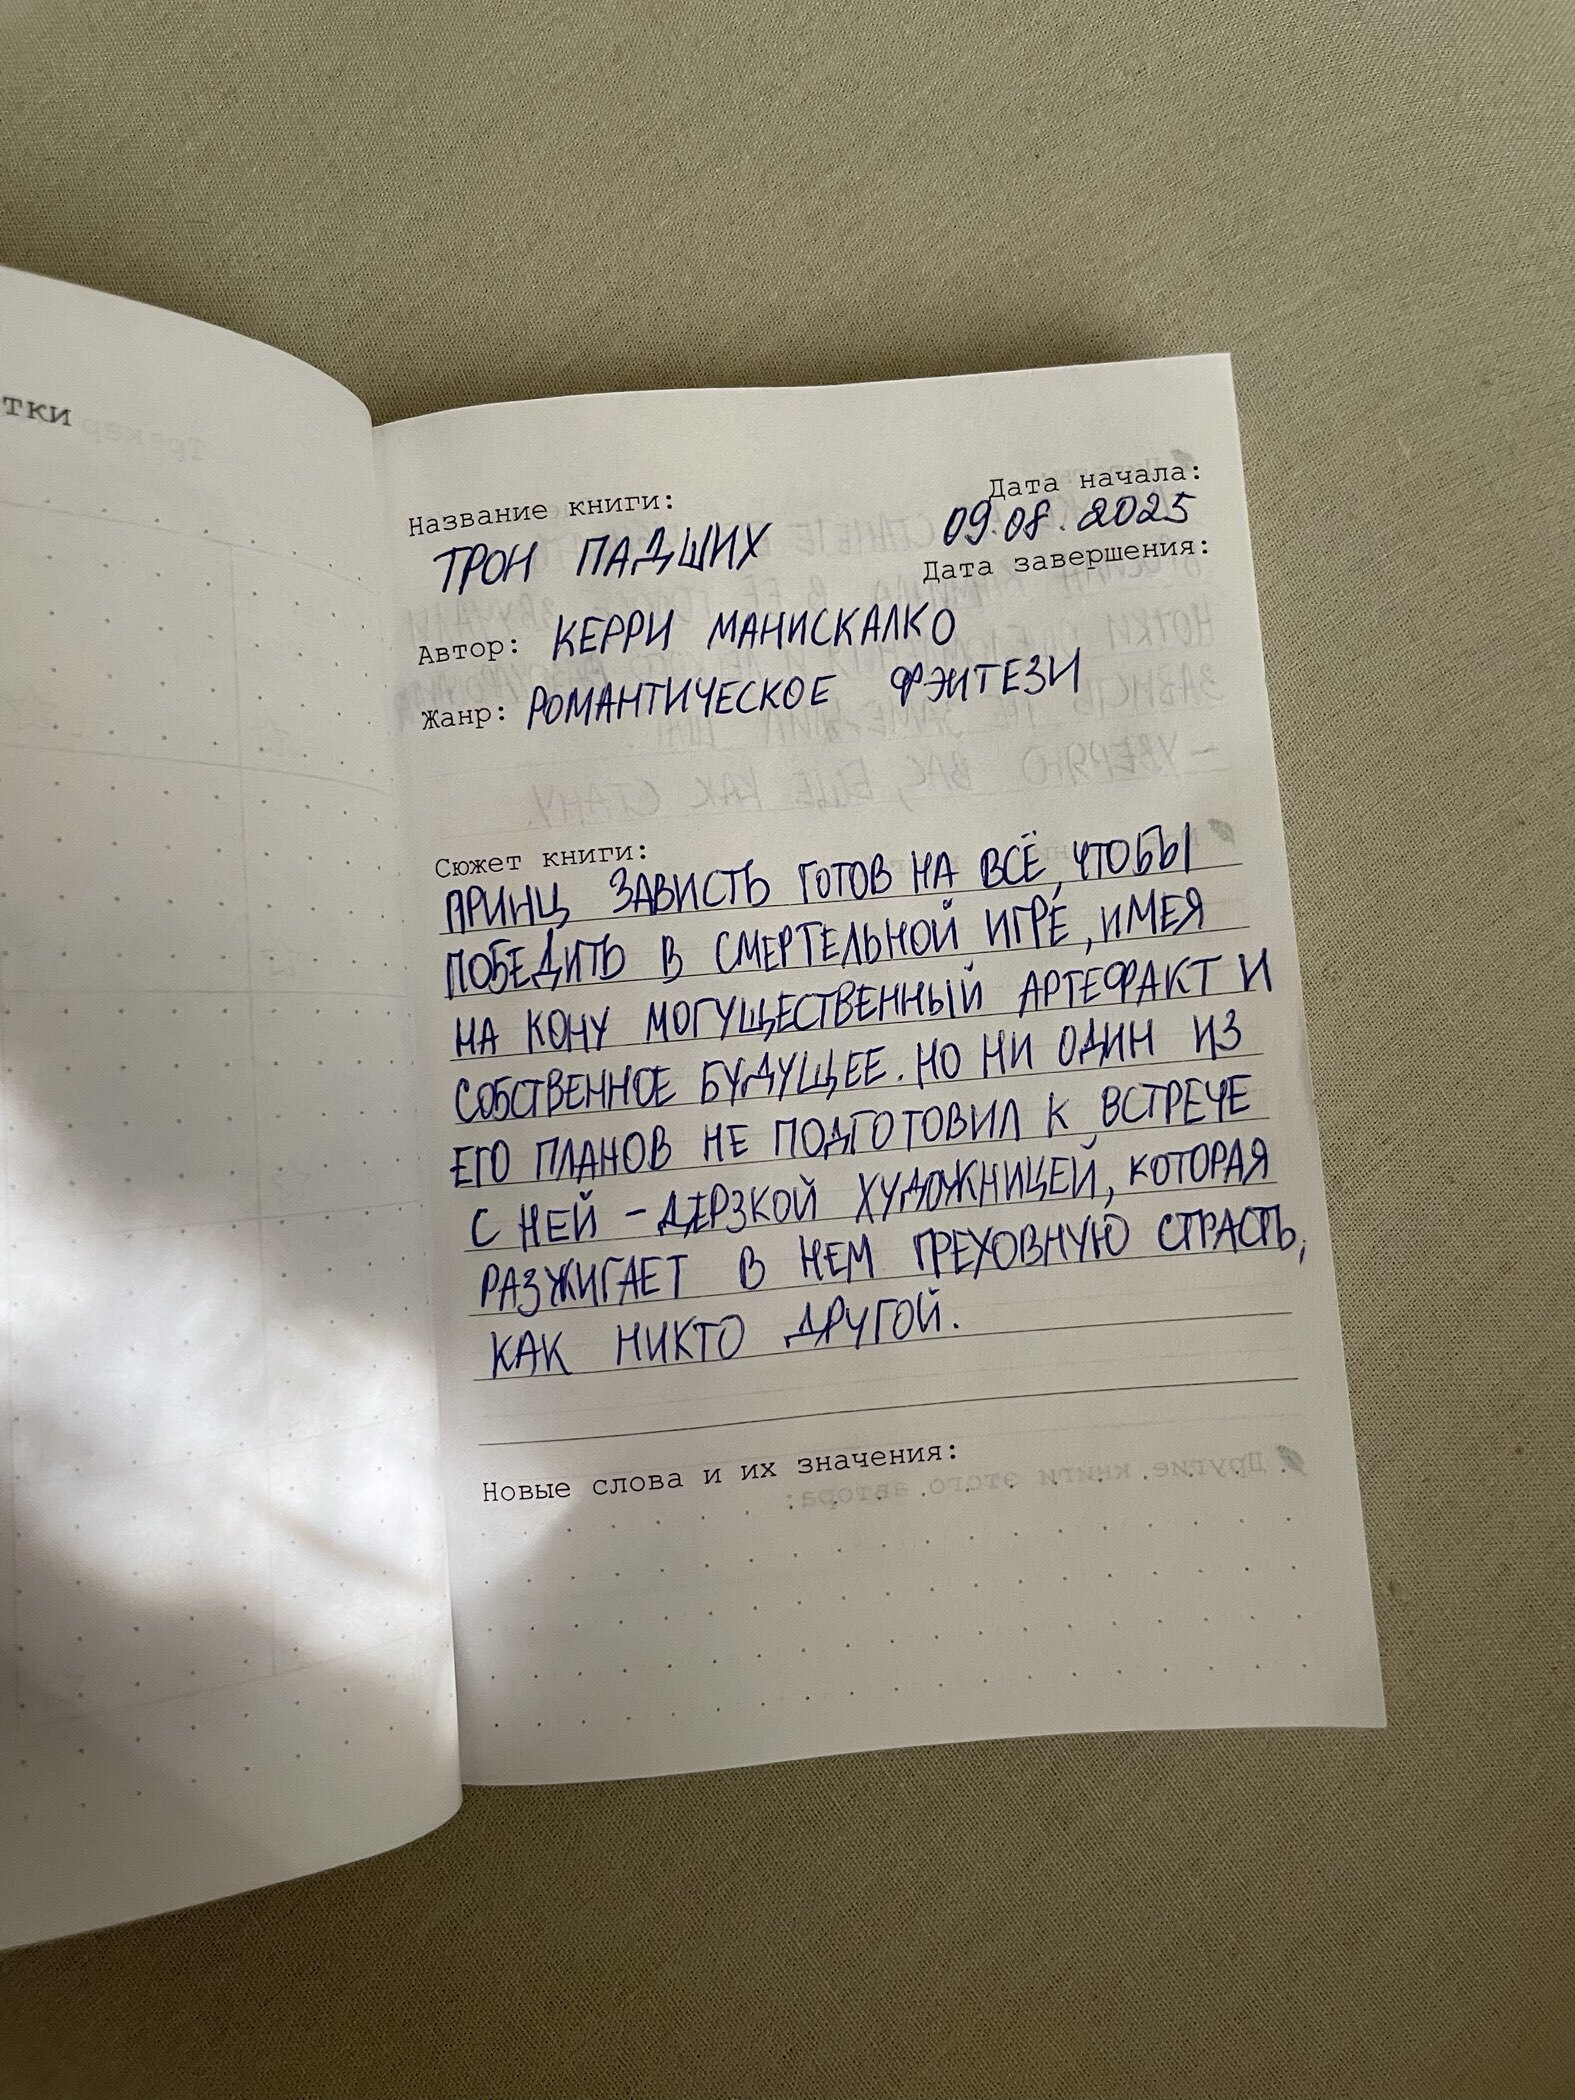 тки
Название книги:
ТРОН ПАДШИХ
Дата начала:
09.08.2025
Дата завершения:
Автор: КЕРРИ МАНИСКАЛКО
Жанр: РОМАНТИЧЕСКОЕ ФЭНТЕЗИ
Сюжет книги:
ПРИНЦ ЗАВИСТЬ ГОТОВ НА ВСЁ, ЧТОБЫ
ПОБЕДИТЬ В СМЕРТЕЛЬНОЙ ИГРЕ, ИМЕЯ
НА КОНУ МОГУЩЕСТВЕННЫЙ АРТЕФАКТ И
СОБСТВЕННОЕ БУДУЩЕЕ. НО НИ ОДИН ИЗ
ЕГО ПЛАНОВ НЕ ПОДГОТОВИЛ К ВСТРЕЧЕ
С НЕЙ - ДЕРЗКОЙ ХУДОЖНИЦЕЙ, КОТОРАЯ
РАЗЖИГАЕТ В НЕМ ГРЕХОВНУЮ СТРАСТЬ,
КАК НИКТО ДРУГОЙ.
Новые слова и их значения:
Другие книги этого автора: